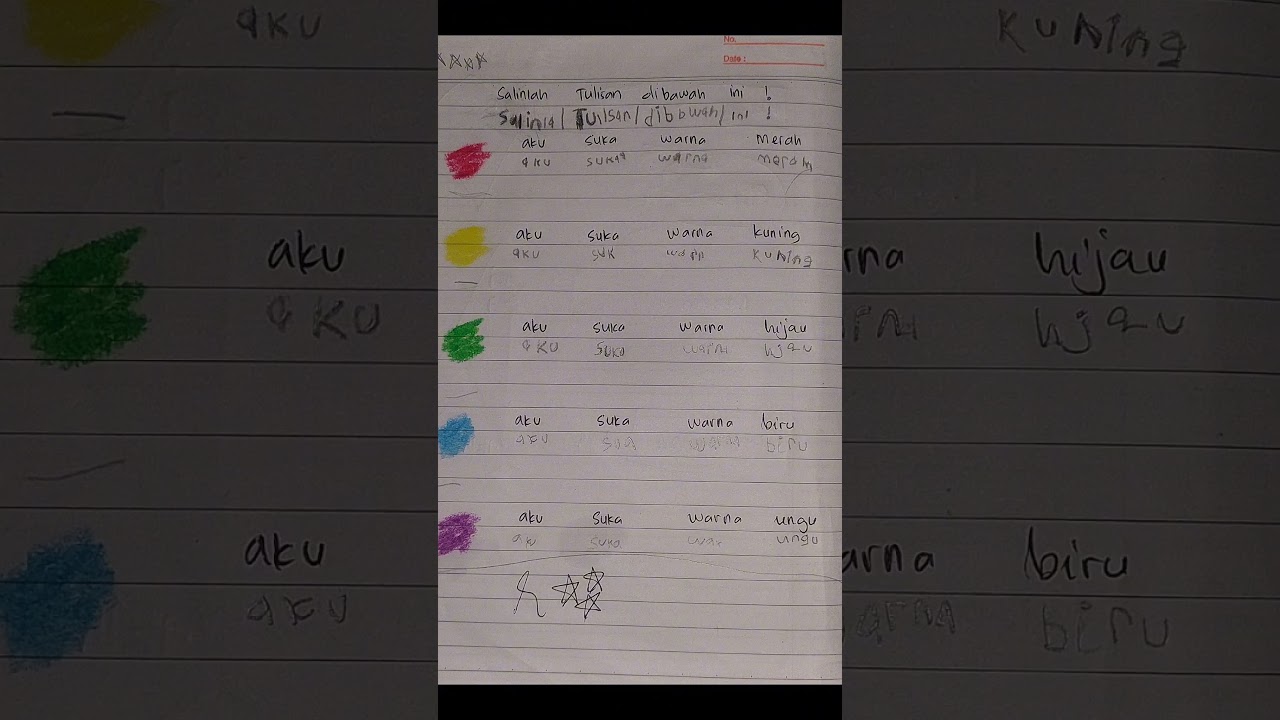 No.
Date :
Salinlah Tulisan dibawah ini !
Salinla/ Tulisan/ dibawah/ ini !
aku suka warna merah
aku suka warna merah
aku suka warna kuning
aku suk warn KUNing
aku suka warna hijau
aKU SUKa warna hjau
aku suka warna biru
aku sua warna biru
aku suka warna ungu
aku suka war ungu